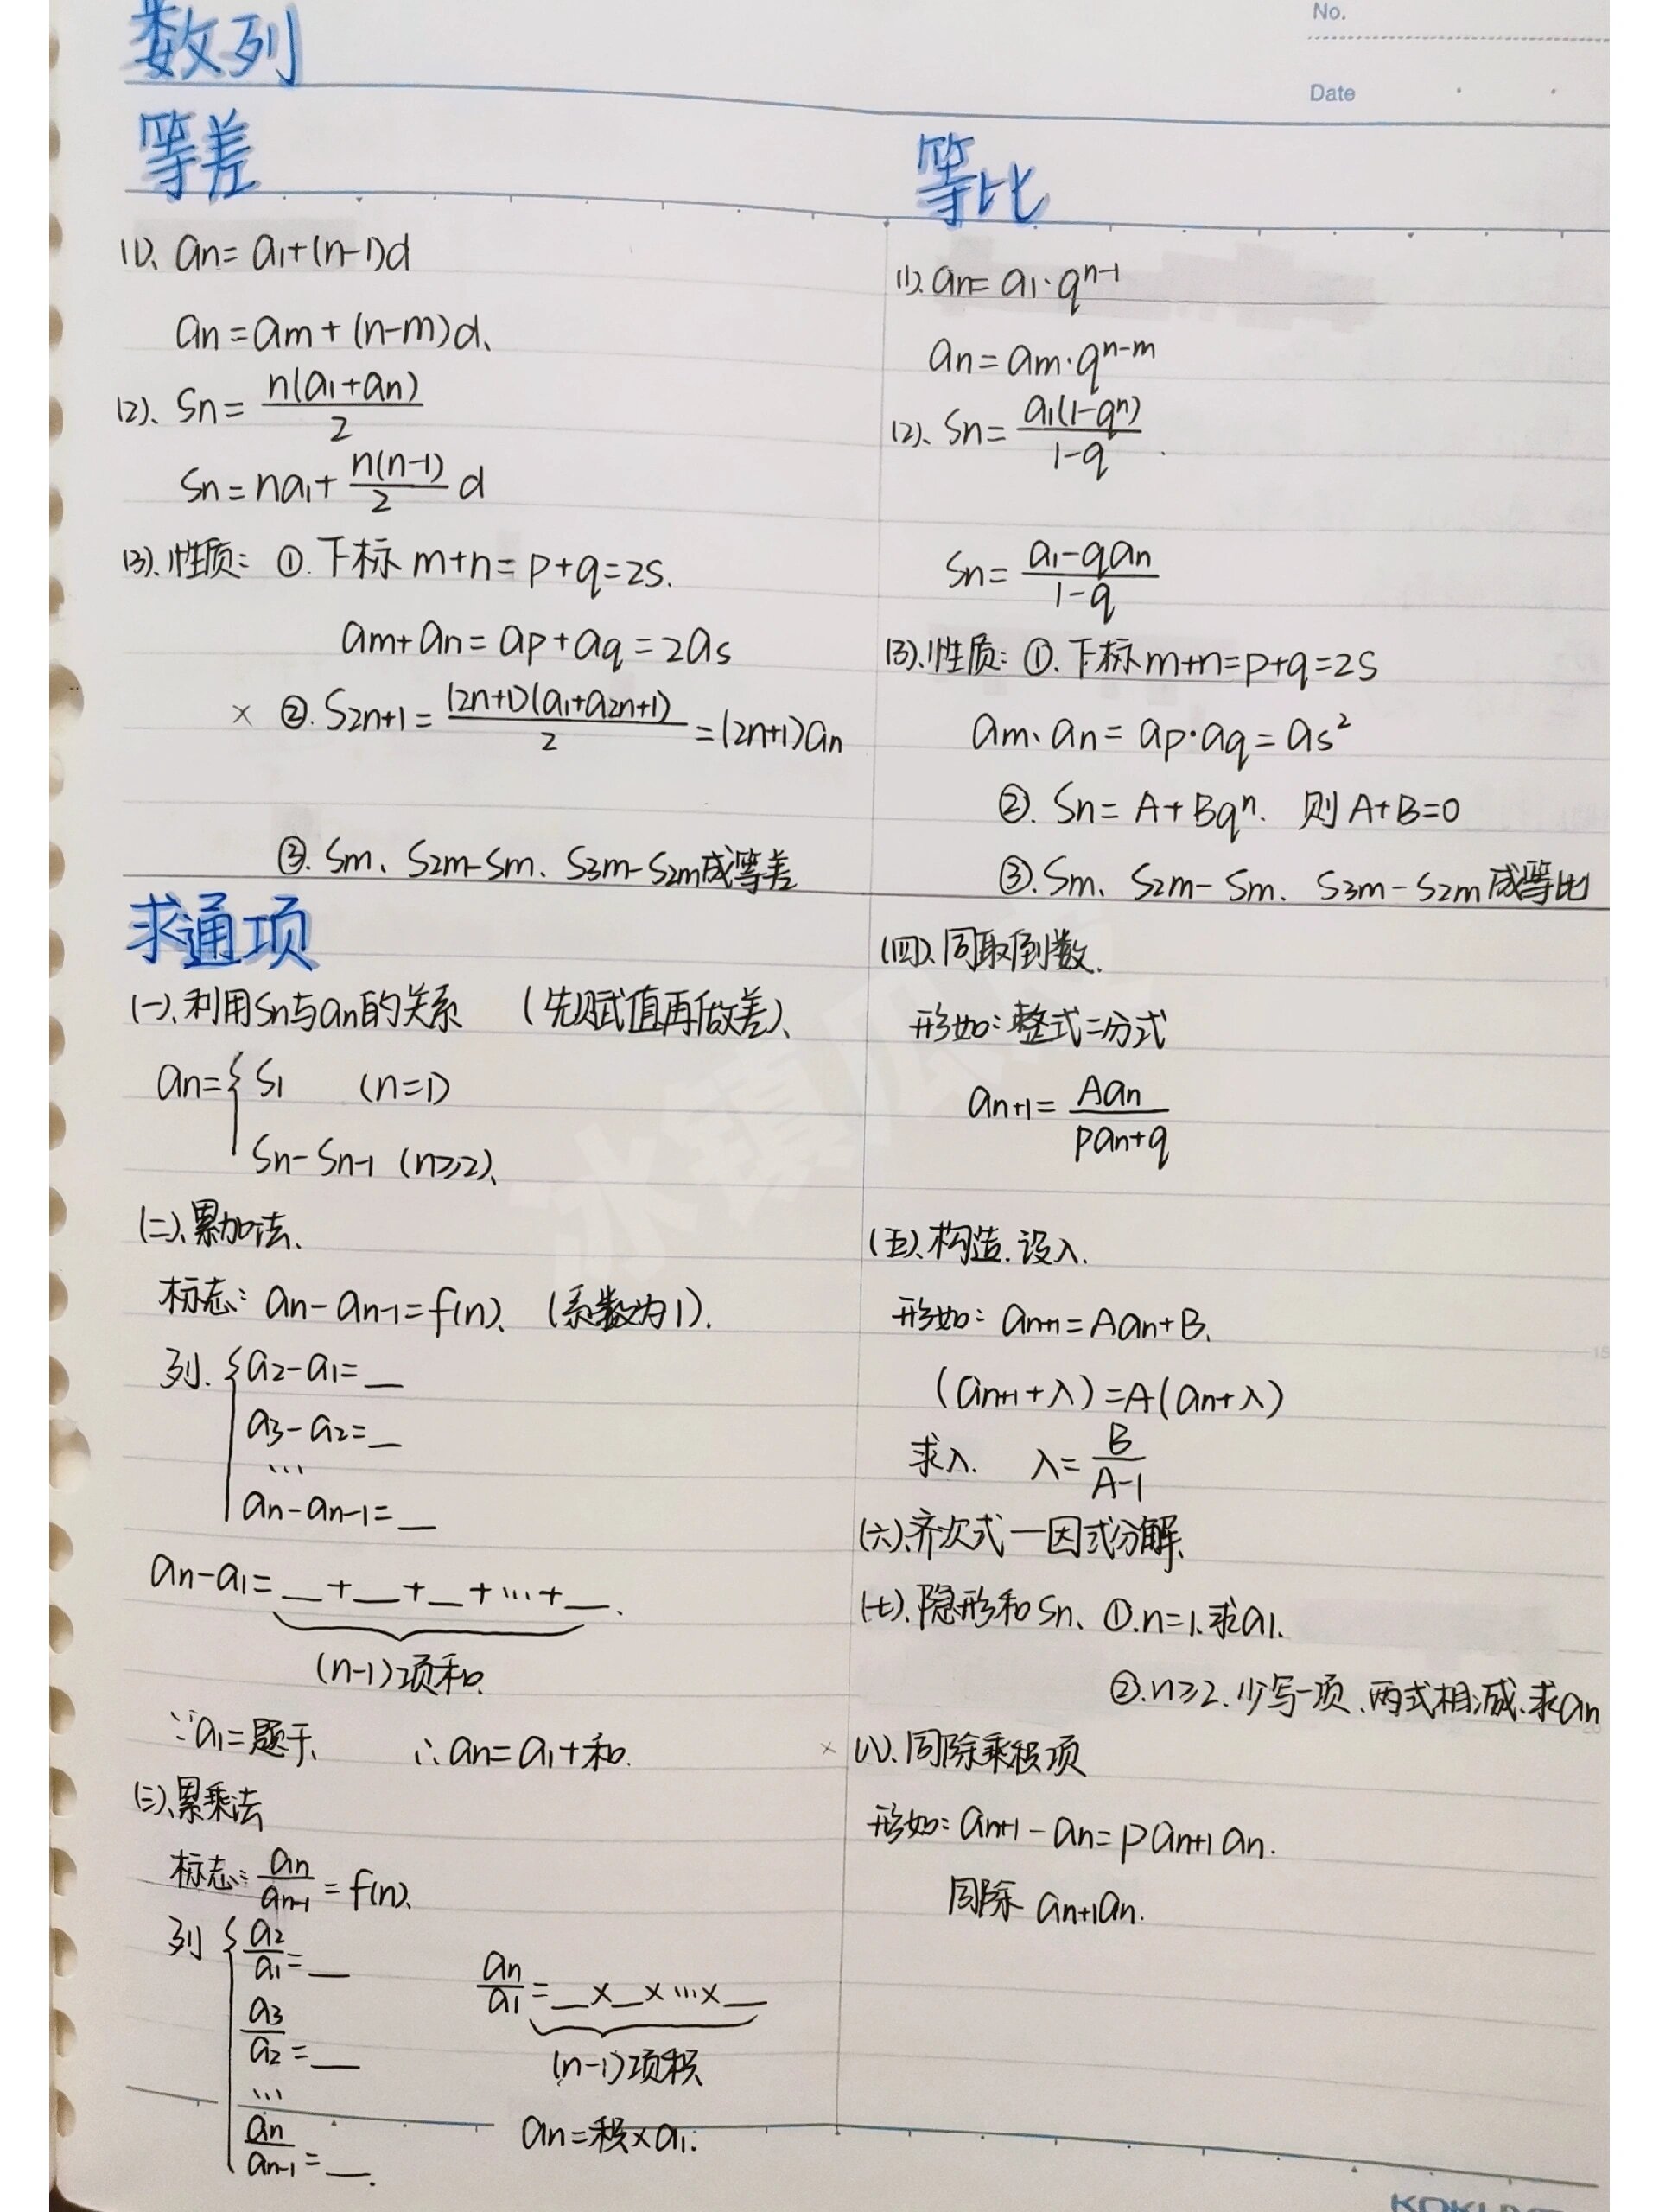 No.
Date
数列
等差
(1)、an=a1+(n-1)d
an=am+(n-m)d、
(2)、Sn=n(a1+an)/2
Sn=na1+n(n-1)/2 d
(3)、性质：①.下标 m+n=p+q=2s.
am+an=ap+aq=2as
× ②.S2n+1=(2n+1)(a1+a2n+1)/2=(2n+1)an
③.Sm、S2m-Sm、S3m-S2m成等差
等比
(1)、an=a1·q^n-1
an=am·q^n-m
(2)、Sn=a1(1-q^n)/1-q
Sn=a1-qan/1-q
(3)、性质：①.下标m+n=p+q=2s
am、an=ap·aq=as²
②.Sn=A+Bq^n. 则A+B=0
③.Sm、S2m-Sm、S3m-S2m成等比
求通项
(一)、利用Sn与an的关系 (先赋值再做差)、
an={S1 (n=1)
Sn-Sn-1 (n≥2)、
(二)、累加法、
标志：an-an-1=f(n)、(系数为1).
列.{a2-a1=__
a3-a2=__
...
an-an-1=__
an-a1=__+__+__+...+__.
(n-1)项和.
∵a1=题干、 ∴an=a1+和.
(三)、累乘法
标志：an/an-1=f(n)、
列{a2/a1=__
a3/a2=__
...
an/an-1=__.
an/a1=__×__×...×__
(n-1)项积
an=积×a1.
(四)、同取倒数.
形如：整式=分式
an+1=Aan/pan+q
(五)、构造.设λ.
形如：an+1=Aan+B、
(an+1+λ)=A(an+λ)
求λ. λ=B/A-1
(六)、齐次式—因式分解、
(七)、隐形和Sn、①.n=1、求a1.
②.n≥2.少写一项、两式相减、求an
× (八)、同除乘积项
形如：an+1-an=pan+1an.
同除 an+1an.